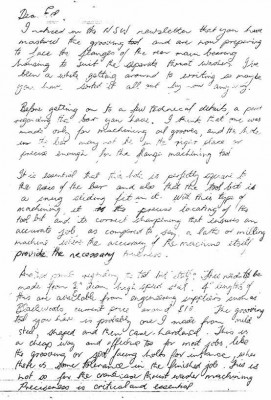 Dear Fog.
I noticed in the NSW newsletter that you have
mastered the grooving tool and are now preparing
to face the flanges of the rear main bearing
housing to suit the separate thrust washer. I've
been a while getting around to writing so maybe
you have sorted it all out by now anyway.
Before getting on to a few technical details a point
regarding the bar you have. I think that one was
made only for machining oil grooves, and the hole
in the bar may not be in the right place or
precise enough for the flange machining tool
It is essential that the hole is perfectly square to
the axis of the bar and also that the tool bit is
a snug sliding fit in it. With this type of
machining it is the precise locating of the
tool bit and its correct sharpening that ensures an
accurate job, as compared to say a lathe or milling
machine where the accuracy of the machine itself
provide the necessary trueness.
point regarding the tool bit These need to be
made from high speed steel. 4" lengths of
this are available from engineering suppliers such as
Blackwoods current price around $10 The grooving
tool you have is probably one made from mild
steel shaped and then case hardened. This is
a cheap way and effective too for most jobs like
the grooving or spot facing holes for instance where
there is some tolerance in the finished job. This is
not so for the crankcase thrust washer machining
Preciseness is critical and essential